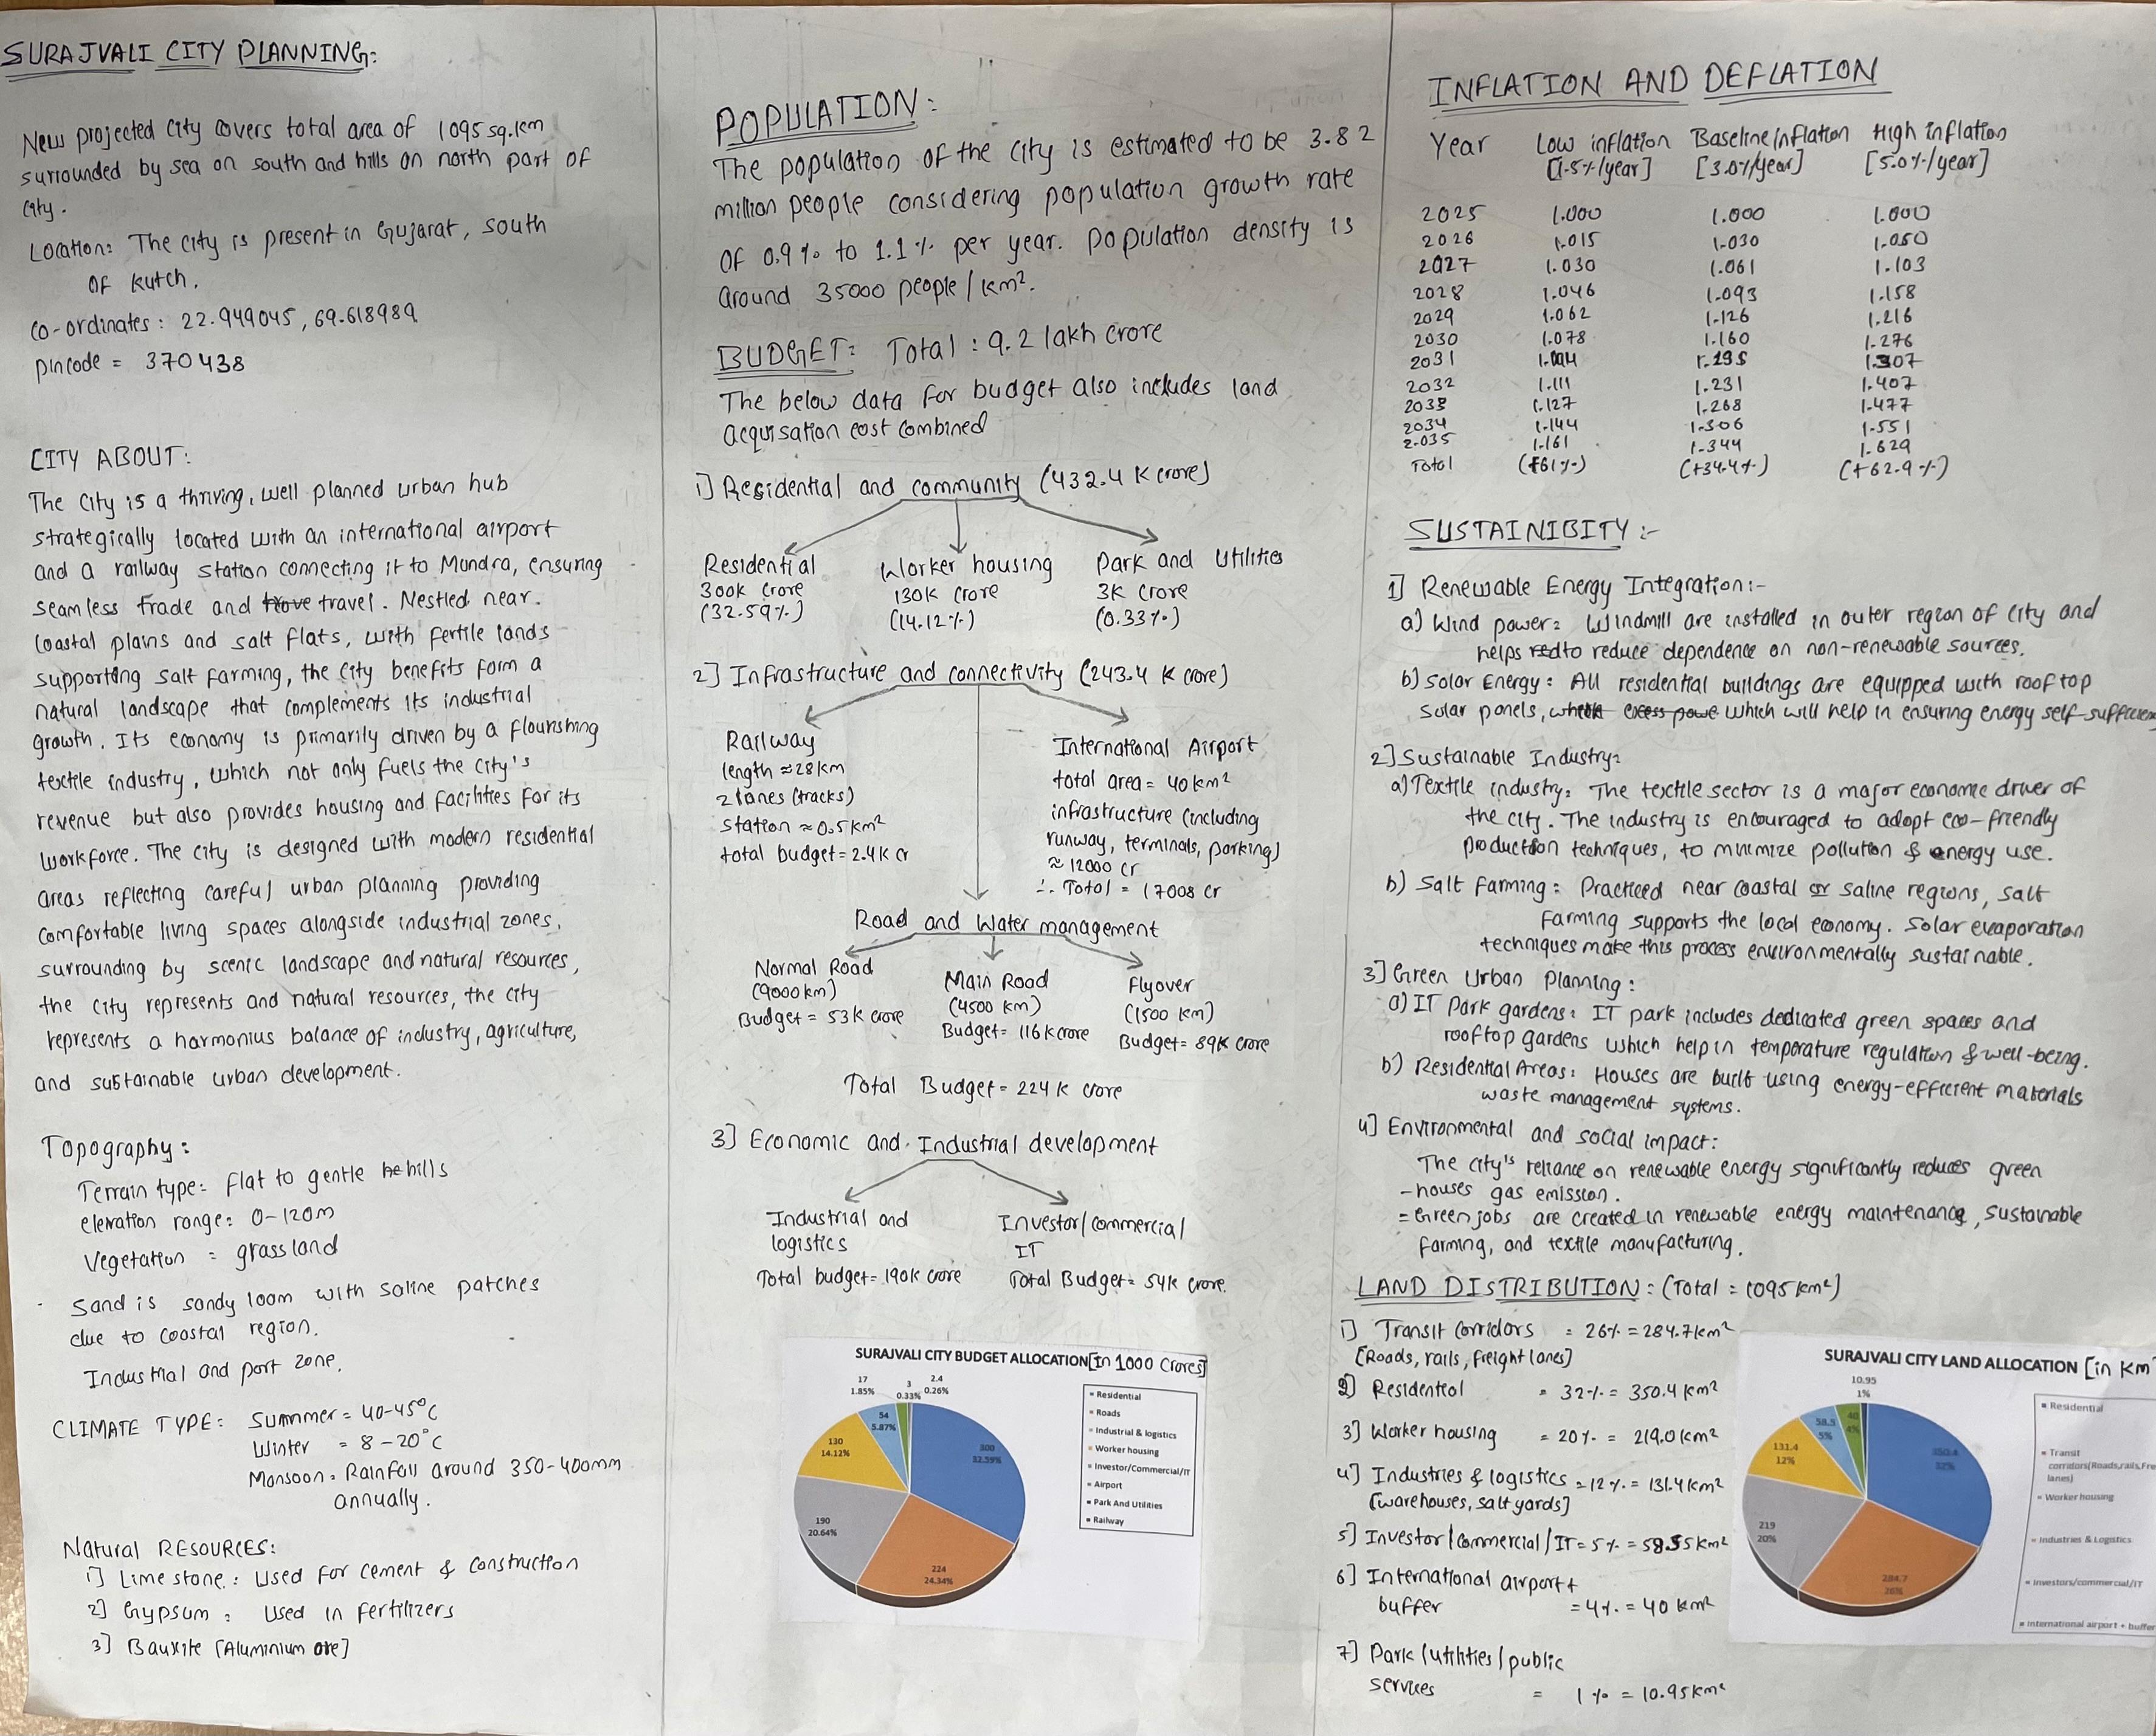 SURAJVALI CITY PLANNING:
New projected city covers total area of 1095 sq.km
surrounded by sea on south and hills on north part of
city.
Location: The city is present in Gujarat, south
of kutch.
co-ordinates: 22.949045, 69.618989
pincode = 370438
CITY ABOUT:
The city is a thriving, well planned urban hub
strategically located with an international airport
and a railway station connecting it to Mundra, ensuring
seamless trade and travel. Nestled near
coastal plains and salt flats, with fertile lands
supporting salt farming, the city benefits form a
natural landscape that complements its industrial
growth. Its economy is primarily driven by a flourishing
textile industry, which not only fuels the city's
revenue but also provides housing and facilities for its
workforce. The city is designed with modern residential
areas reflecting careful urban planning providing
comfortable living spaces alongside industrial zones.
surrounding by scenic landscape and natural resources,
the city represents and natural resources, the city
represents a harmonius balance of industry, agriculture,
and sustainable urban development.
Topography:
Terrain type: flat to gentle hills
elevation range: 0-120m
Vegetation = grassland
Sand is sandy loam with saline patches
due to coastal region.
Industrial and port zone.
CLIMATE TYPE: Summer = 40-45°C
Winter = 8-20°C
Monsoon = Rainfall around 350-400mm
annually.
Natural RESOURCES:
1] Lime stone: Used for cement & construction
2] Gypsum: Used in fertilizers
3] Bauxite [Aluminium ore]
POPULATION:
The population of the city is estimated to be 3.82
million people considering population growth rate
of 0.9% to 1.1% per year. population density is
around 35000 people/km².
BUDGET: Total: 9.2 lakh crore
The below data for budget also includes land
acquisation cost combined
1] Residential and community (432.4 K crore)
Residential Worker housing Park and Utilities
300K crore 130K crore 3K crore
(32.59%) (14.12%) (0.33%)
2] Infrastructure and connectivity (243.4 K crore)
Railway
length ≈28km
2 lanes (tracks)
station ≈ 0.5km²
total budget = 2.4K cr
International Airport
total area = 40km²
infrastructure (including
runway, terminals, parking)
≈ 12000 cr
∴ Total = 17008 cr
Road and Water management
Normal Road
(9000km)
Budget = 53K crore
Main Road
(4500 km)
Budget= 116K crore
Flyover
(1500 km)
Budget= 89K crore
Total Budget = 224K crore
3] Economic and Industrial development
Industrial and
logistics
Total budget= 190K crore
Investor/commercial/
IT
Total Budget= 54K crore.
SURAJVALI CITY BUDGET ALLOCATION[In 1000 Crores]
17
1.85%
3
0.33%
2.4
0.26%
54
5.87%
130
14.12%
300
32.59%
190
20.64%
224
24.34%
Residential
Roads
Industrial & logistics
Worker housing
Investor/Commercial/IT
Airport
Park And Utilities
Railway
INFLATION AND DEFLATION
Year Low inflation Baseline inflation High inflation
[1.5%/year] [3.0%/year] [5.0%/year]
2025 1.000 1.000 1.000
2026 1.015 1.030 1.050
2027 1.030 1.061 1.103
2028 1.046 1.093 1.158
2029 1.062 1.126 1.216
2030 1.078 1.160 1.276
2031 1.195 1.307
2032 1.111 1.231 1.407
2033 1.127 1.268 1.477
2034 1.144 1.306 1.551
2035 1.161 1.344 1.629
Total (+34.4%) (+62.9%)
SUSTAINIBITY :-
1] Renewable Energy Integration:-
a) Wind power: Windmill are installed in outer region of city and
helps to reduce dependence on non-renewable sources.
b) Solar Energy: All residential buildings are equipped with rooftop
solar panels, which will help in ensuring energy
2] Sustainable Industry:
a) Textile industry: The textile sector is a major economic driver of
the city. The industry is encouraged to adopt eco-friendly
production techniques, to minimize pollution & energy use.
b) Salt farming: Practiced near coastal or saline regions, salt
farming supports the local economy. Solar evaporation
techniques make this process environmentally sustainable.
3] Green Urban Planning:
a) IT Park gardens: IT park includes dedicated green spaces and
rooftop gardens which help in temperature regulation & well-being.
b) Residential Areas: Houses are built using energy-efficient materials
waste management systems.
4] Environmental and social impact:
The city's reliance on renewable energy significantly reduces green
-houses gas emission.
= Green jobs are created in renewable energy maintenance, sustainable
farming, and textile manufacturing.
LAND DISTRIBUTION: (Total = 1095 km²)
1] Transit corridors = 26% = 284.7km²
[Roads, rails, freight lanes]
2] Residential = 32% = 350.4 km²
3] Worker housing = 20% = 219.0km²
4] Industries & logistics = 12% = 131.4km²
[warehouses, salt yards]
5] Investor/commercial/IT = 5% = 58.55km²
6] International airport +
buffer = 4% = 40 km²
7] Park/utilities/public
services = 1% = 10.95km²
SURAJVALI CITY LAND ALLOCATION [in Km
10.95
1%
40
4%
58.5
5%
131.4
12%
350.4
32%
219
20%
284.7
26%
Residential
Transit
corridors(Roads,rails,Fre
lanes)
Worker housing
Industries & Logistics
Investors/commercial/IT
international airport + buffer